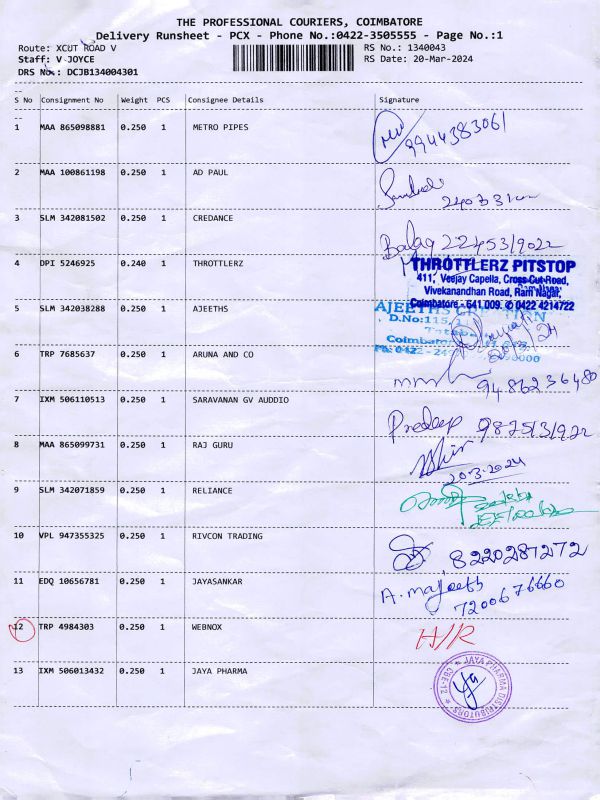 THE PROFESSIONAL COURIERS, COIMBATORE
Delivery Runsheet - PCX - Phone No.:0422-3505555 - Page No.:1
Route: XCUT ROAD V RS No.: 1340043
Staff: V JOYCE RS Date: 20-Mar-2024
DRS No.: DCJB134004301
S No Consignment No Weight PCS Consignee Details Signature
1 MAA 865098881 0.250 1 METRO PIPES
9944383061
2 MAA 100861198 0.250 1 AD PAUL
3 SLM 342081502 0.250 1 CREDANCE
Balaq 22453/9022
4 DPI 5246925 0.240 1 THROTTLERZ
THROTTLERZ PITSTOP
411, Veejay Capella, Cross Cut Road,
Vivekanandhan Road, Ram Nagar,
Coimbatore - 641 009. ✆ 0422 4214722
5 SLM 342038288 0.250 1 AJEETHS
AJEETHS
D.No:115,
Coimbatore
Ph: 0422 -
6 TRP 7685637 0.250 1 ARUNA AND CO
9486236480
7 IXM 506110513 0.250 1 SARAVANAN GV AUDDIO
Pradeep
8 MAA 865099731 0.250 1 RAJ GURU
20.3.2024
9 SLM 342071859 0.250 1 RELIANCE
10 VPL 947355325 0.250 1 RIVCON TRADING
8220287272
11 EDQ 10656781 0.250 1 JAYASANKAR
A. majeeth
7200676660
12 TRP 4984303 0.250 1 WEBNOX
H/R
13 IXM 506013432 0.250 1 JAYA PHARMA
JAYA PHARMA DISTRIBUTORS
CBE-12